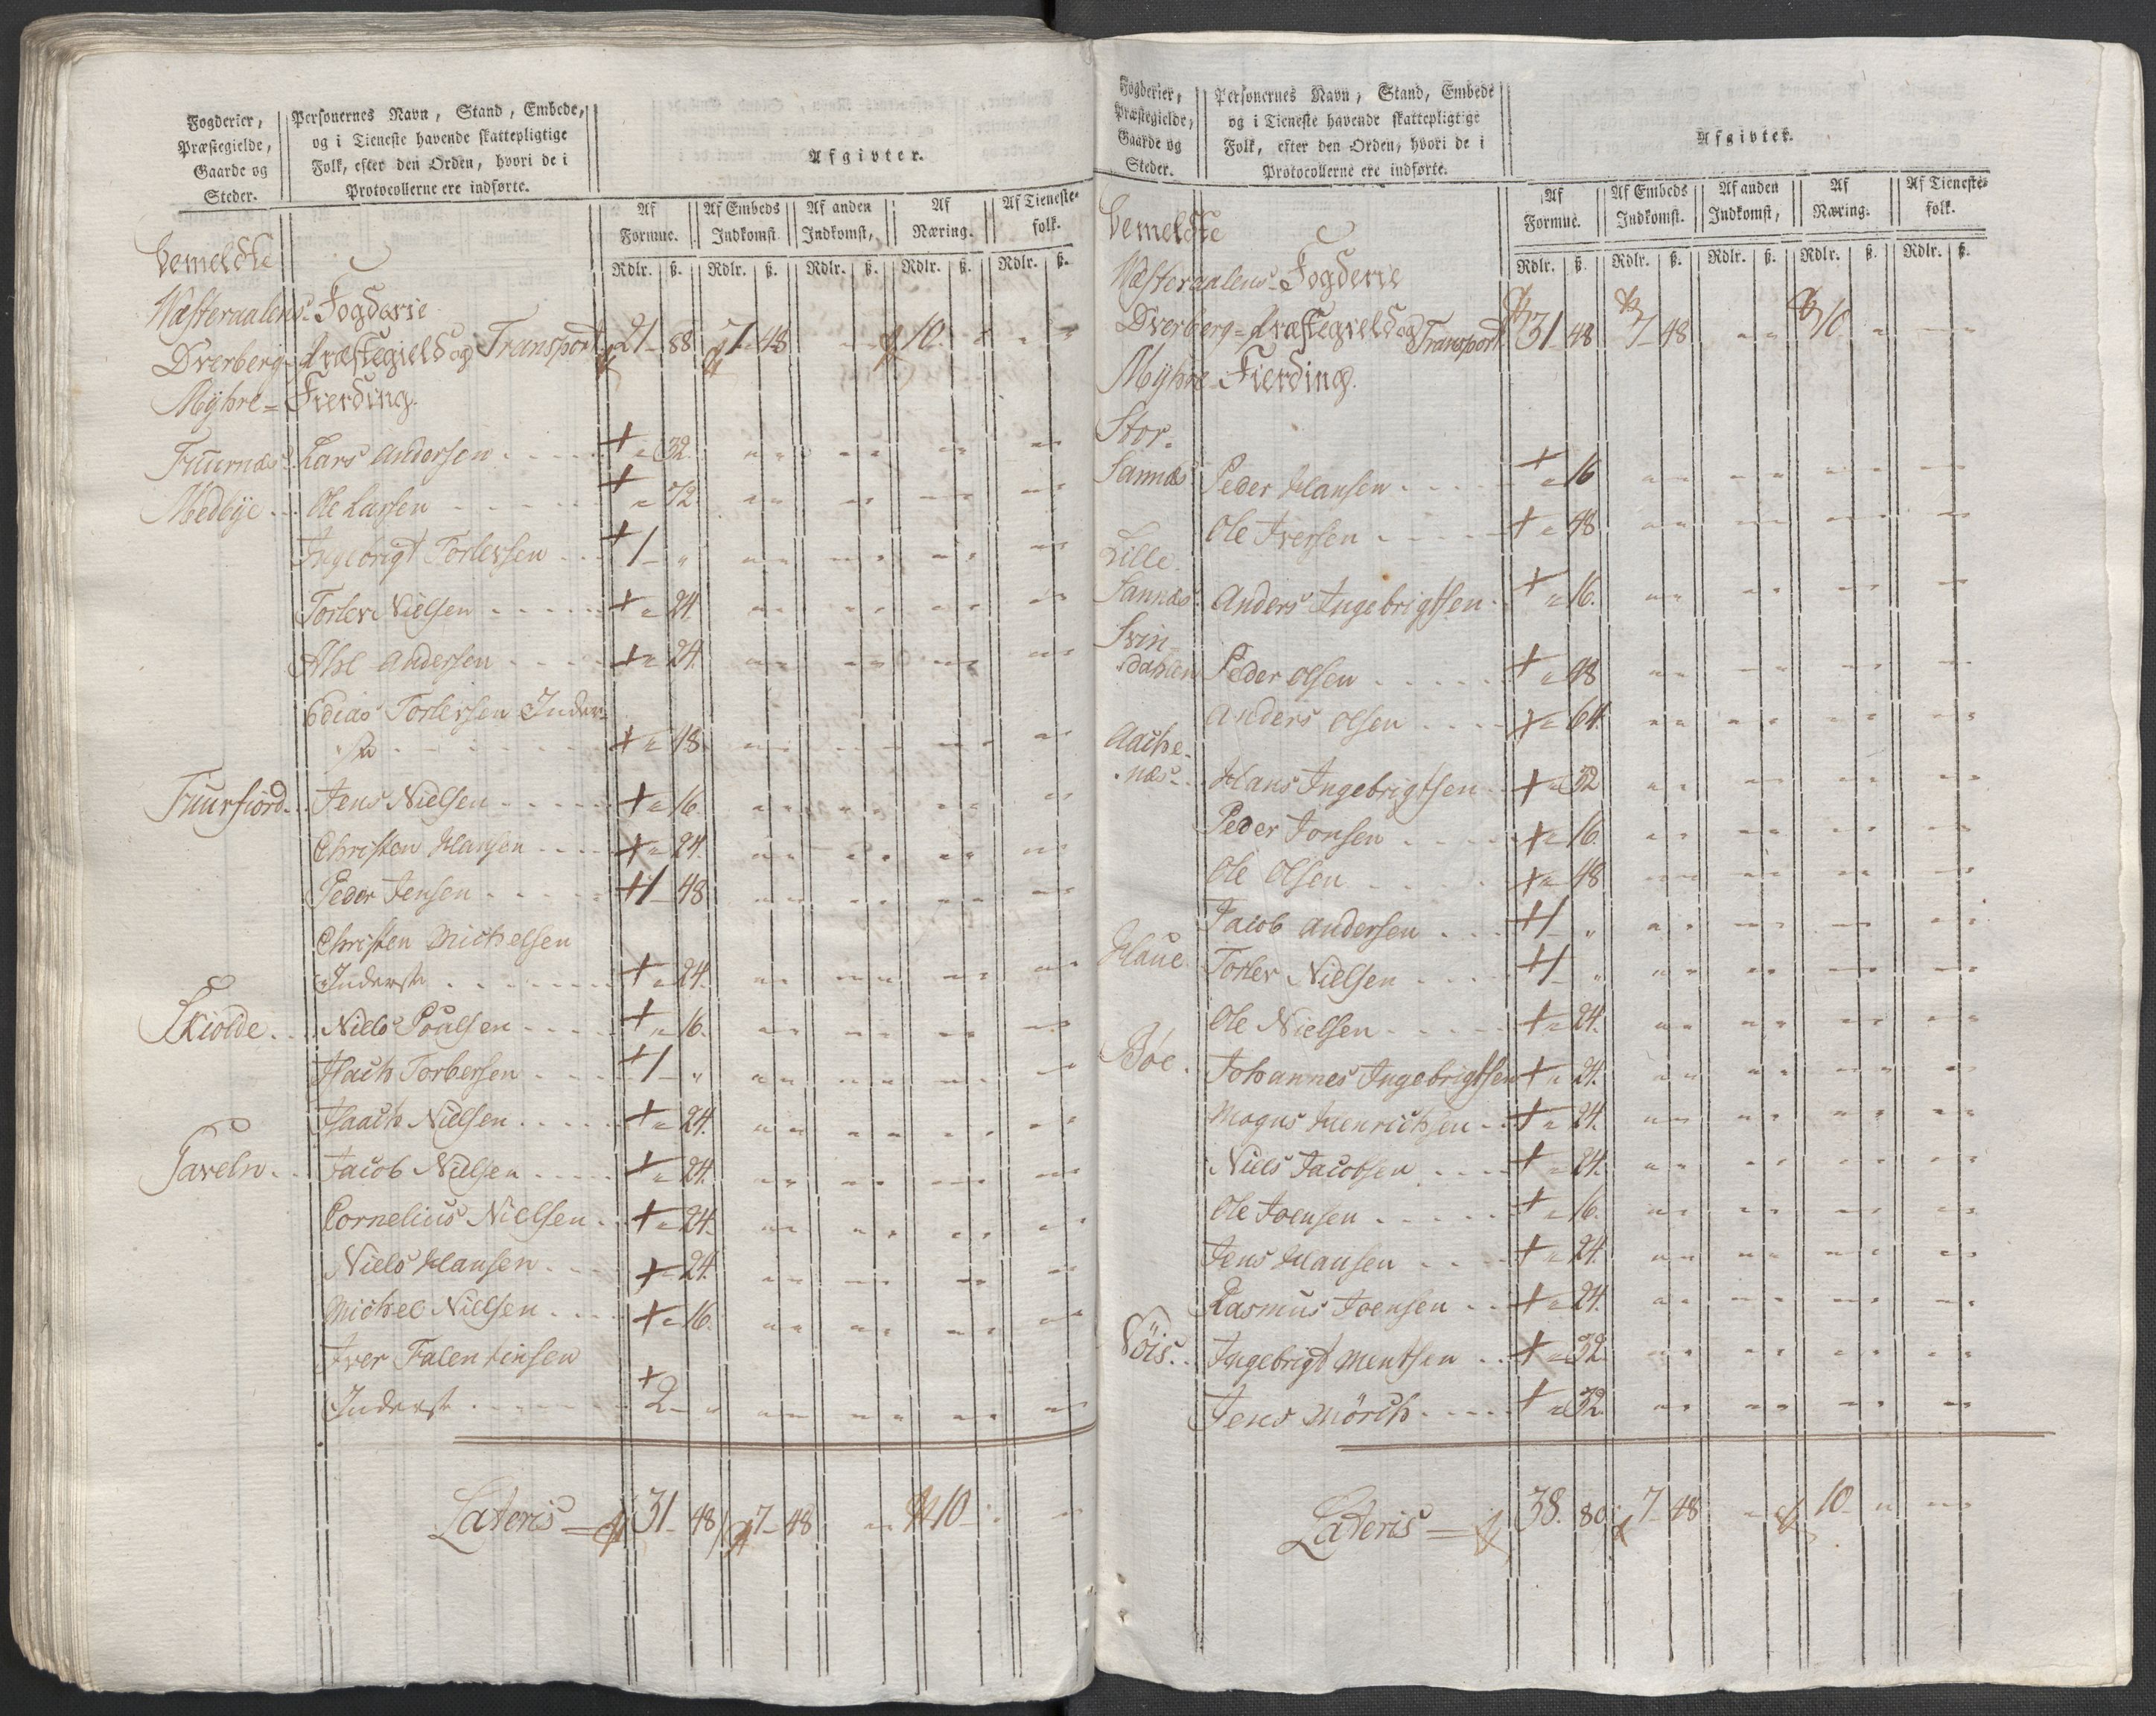 Fogderier,
Præstegielde,
Gaarde og
Steder.
Personernes Navn, Stand, Embede,
og i Tieneste havende skattepligtige
Folk, efter den Orden, hvori de i
Protocollerne ere indførte.
Afgivter.
Af Formue.
Af Embeds Indkomst
Af anden Indkomst,
Af Næring.
Af Tieneste-folk.
Rdlr. ß. Rdlr. ß. Rdlr. ß. Rdlr. ß. Rdlr. ß.
Bemeldte
Wæsteraalens Fogderie
Dverberg=Præstegield og Transport 21 - 88 7 - 48 - - 10 - - -
Myhre=Fierding.
Fuurnæs. Lars Andersen - - - - + " 32.
Medbye... Ole Larsen - - - - + " 72
Ingebrigt Torlevsen - - + 1 - "
Torlev Nielsen - - - - + " 24.
Andersen - - - - + " 24.
Torlersen Inder=
ste - - - - - + " 48
Fuurfiord. Jens Nielsen - - - - + " 16.
Christen Hansen - - - + " 24.
Peder Jensen - - - - + 1 - 48
Christen Michelsen
Inderste - - - - + " 24.
Skiolde... Niels Poulsen - - - - + " 16.
Torbersen - - - + 1 - "
Nielsen - - - - + " 24.
Taveln... Jacob Nielsen - - - - + " 24.
Cornelius Nielsen - - + " 24.
Niels Hansen - - - + " 24.
Michel Nielsen - - - + " 16.
Iver Falentinsen
Inderst - - - - - + 2 - "
Lateris = 31 - 48 7 - 48 - - 10 - - -
Fogderier,
Præstegielde,
Gaarde og
Steder.
Personernes Navn, Stand, Embede
og i Tieneste havende skattepligtige
Folk, efter den Orden, hvori de i
Protocollerne ere indførte.
Afgivter.
Af Formue.
Af Embeds Indkomst.
Af anden Indkomst,
Af Næring.
Af Tieneste-folk.
Rdlr. ß. Rdlr. ß. Rdlr. ß. Rdlr. ß. Rdlr. ß.
Bemeldte
Wæsteraalens=Fogderie
Dverberg=Præstegield og Transport 31 - 48 7 - 48 - - 10 - - -
Myhre Fierding.
Stor.
Sannæs Peder Hansen - - - - + " 16
Ole Iversen - - - - + " 48
Lille
Sannæs. Anders Ingebrigtsen - + " 16.
Svin
dahlen Peder Olsen - - - - + " 48
Anders Olsen - - - - + " 64.
Aache-
næs... Hans Ingebrigtsen - + " 32
Peder Jonsen - - - - + " 16.
Ole Olsen - - - - + " 48
Jacob Andersen - - - + 1 - "
Haue Torlev Nielsen - - - + 1 - "
Ole Nielsen - - - - + " 24.
Bøe. Johannes Ingebrigtsen + " 24.
Mogns Henrichsen - - + " 24.
Niels Jacobsen - - - + " 24.
Ole Joensen - - - - + " 16.
Jens Hansen - - - + " 24.
Rasmus Joensen - - + " 24.
Nöis... Ingebrigt Mentsen - - + " 32.
Jens Mörch - - - - + " 32.
Lateris = 38. 80 7 - 48 - - 10 - " - -